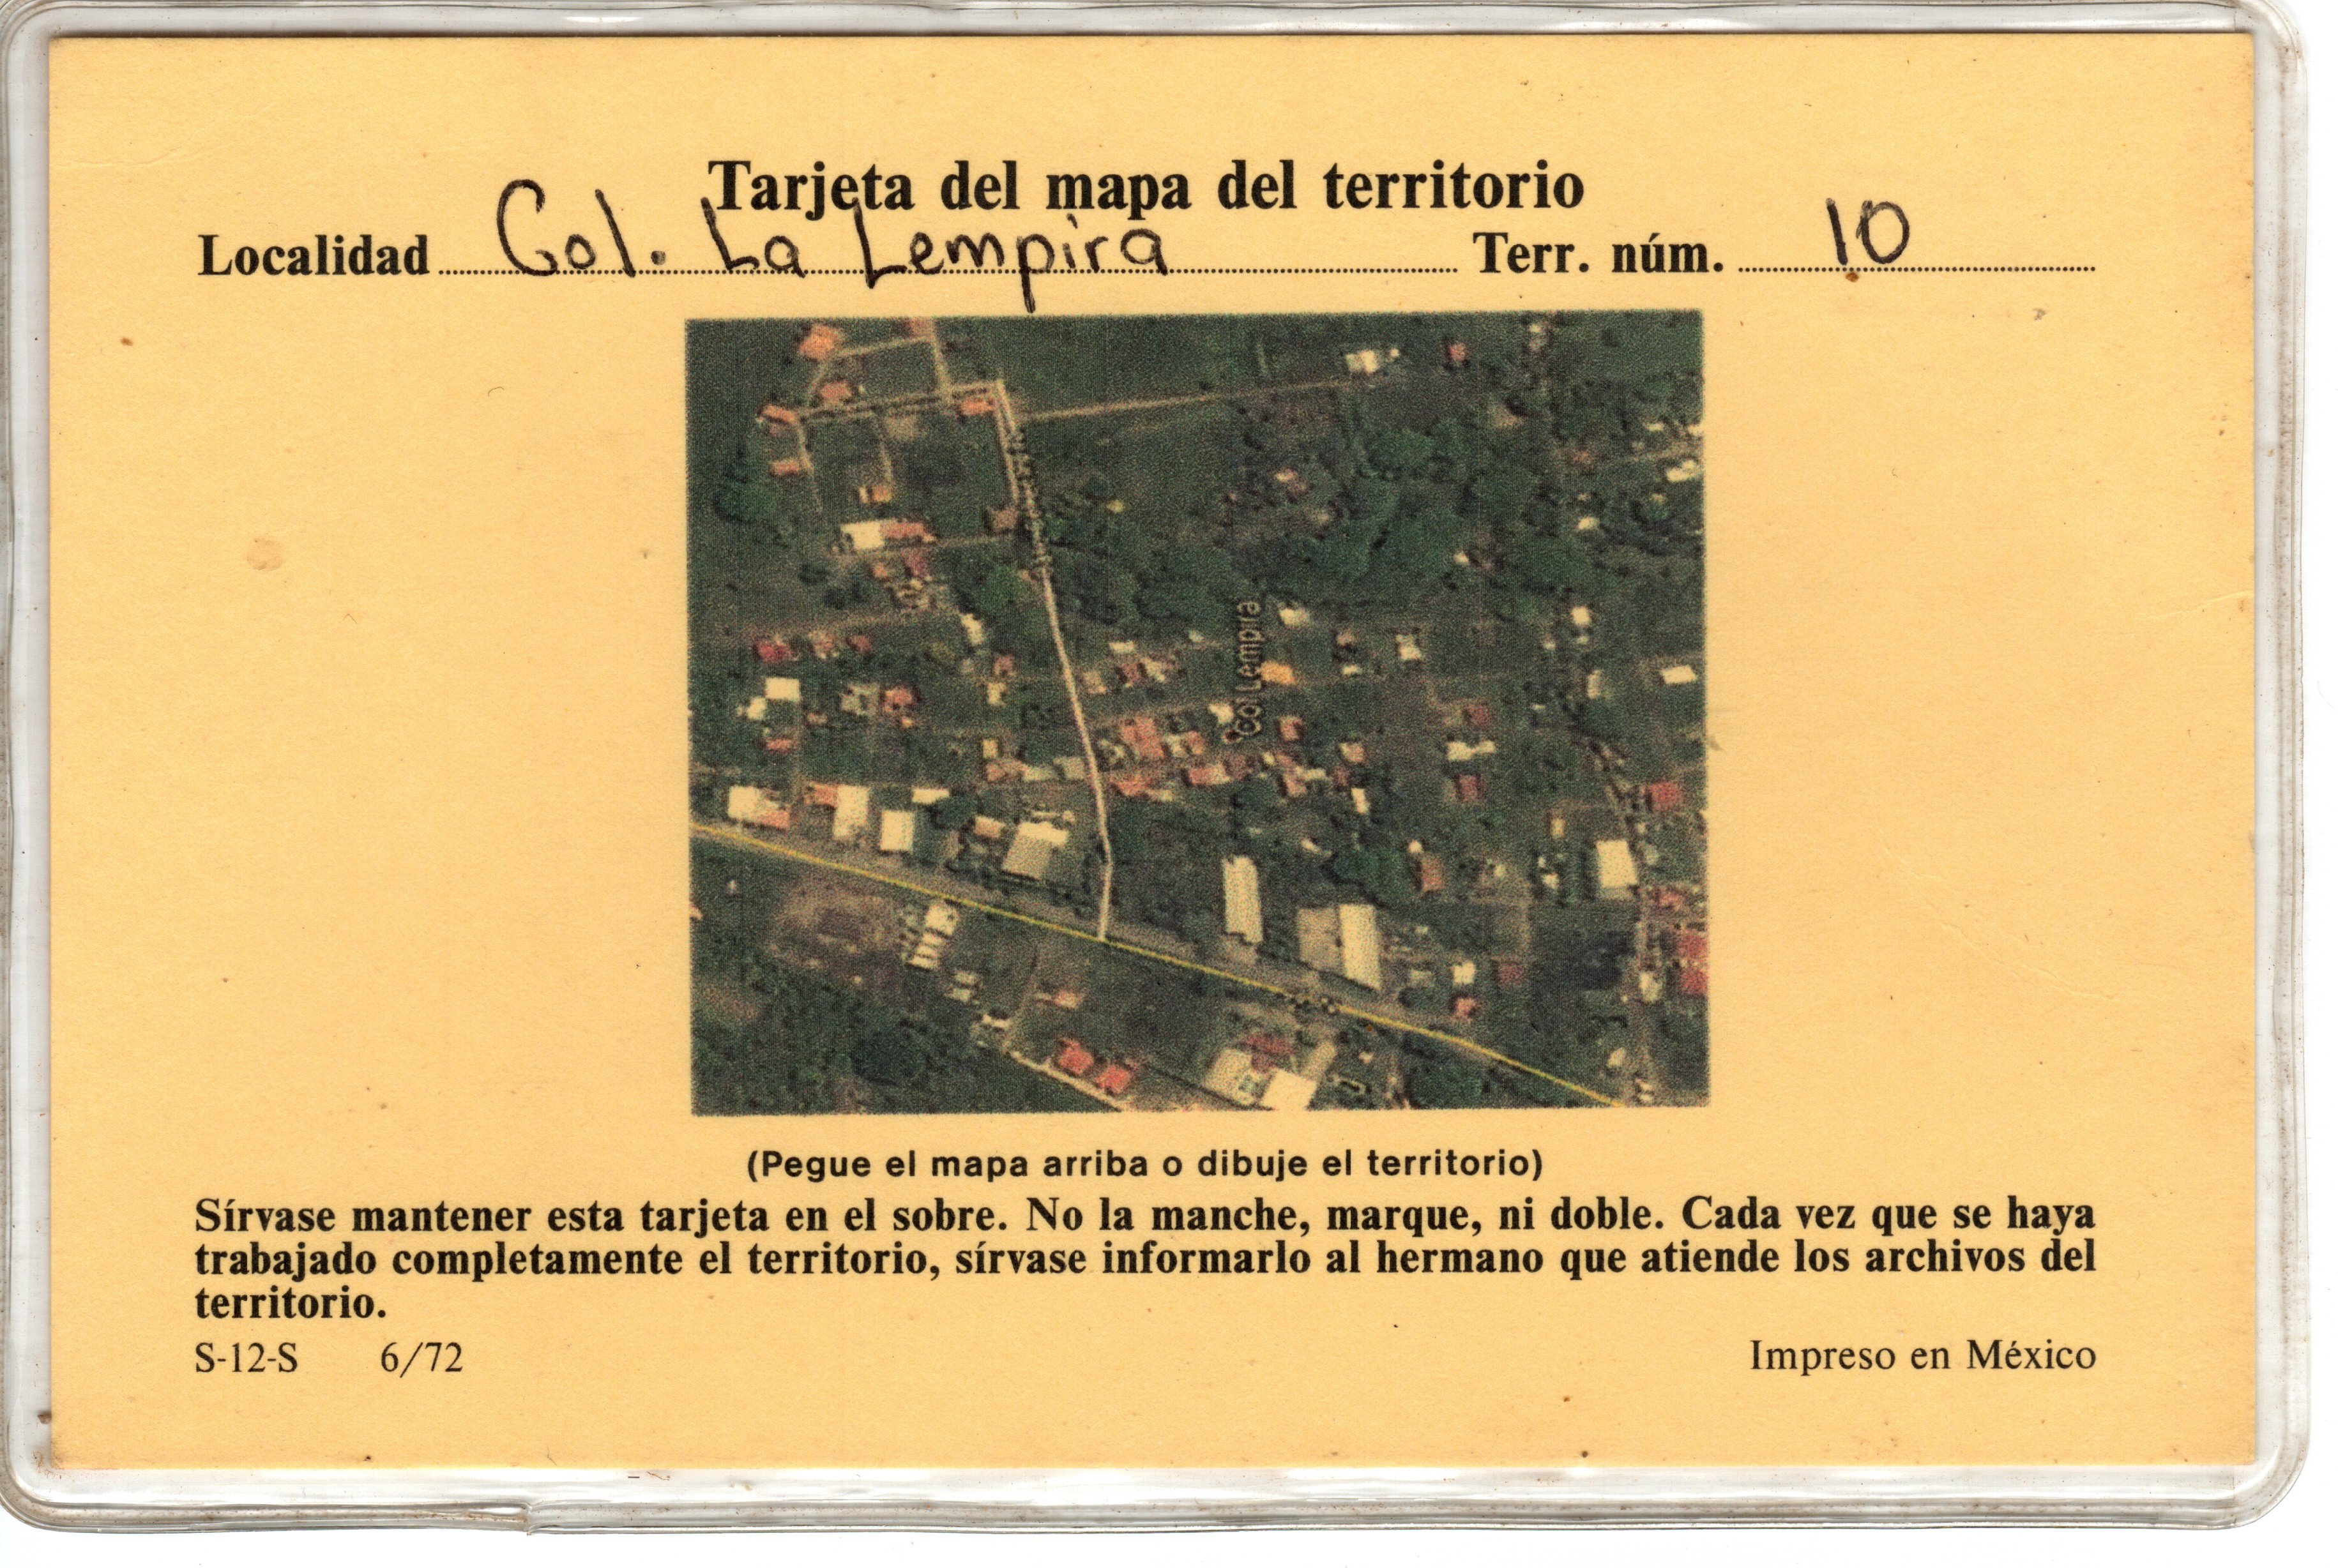 Tarjeta del mapa del territorio
Localidad Col. La Lempira Terr. núm. 10
Col Lempira
(Pegue el mapa arriba o dibuje el territorio)
Sírvase mantener esta tarjeta en el sobre. No la manche, marque, ni doble. Cada vez que se haya
trabajado completamente el territorio, sírvase informarlo al hermano que atiende los archivos del
territorio.
S-12-S 6/72 Impreso en México